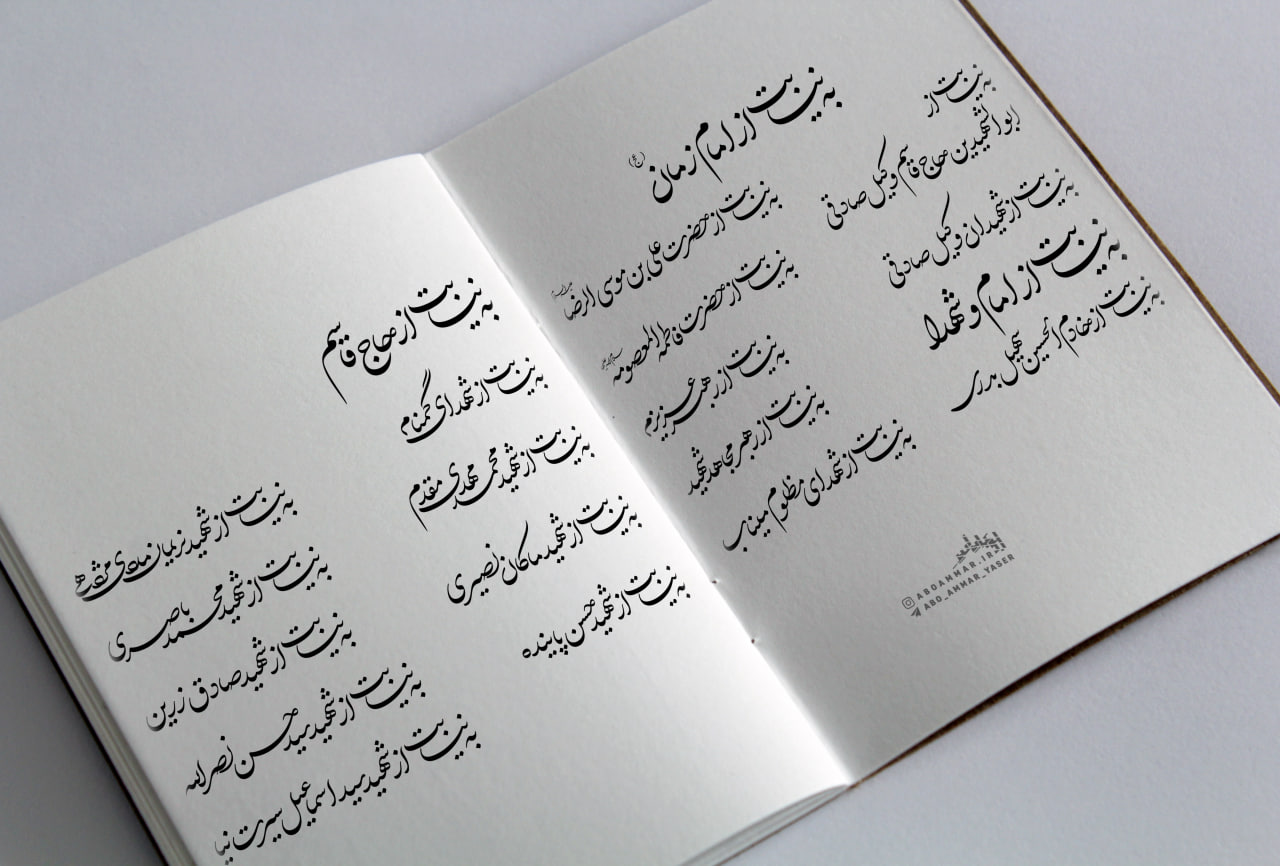 به نیابت از
ابوالشهیدین حاج قاسم وکیل صادقی
به نیابت از شهیدان وکیل صادقی
به نیابت از امام و شهدا
به نیابت از خادم الحسین سهیل بدری
به نیابت از امام زمان (عج)
به نیابت از حضرت علی بن موسی الرضا
به نیابت از حضرت فاطمه المعصومه
به نیابت از رهبر عزیزم
به نیابت از رهبر مجاهد شهید
به نیابت از شهدای مظلوم میناب
ABOAMMAR.IR
ABO_AMMAR_YASER
به نیابت از حاج قاسم
به نیابت از شهدای گمنام
به نیابت از شهید محمد مهدی مقدم
به نیابت از شهید ماکان نصیری
به نیابت از شهید حسن پاینده
به نیابت از شهید نریمان
به نیابت از شهید محمد ناصری
به نیابت از شهید صادق زرین
به نیابت از شهید سید حسن نصرالله
به نیابت از شهید سید اسماعیل سیرت نیا